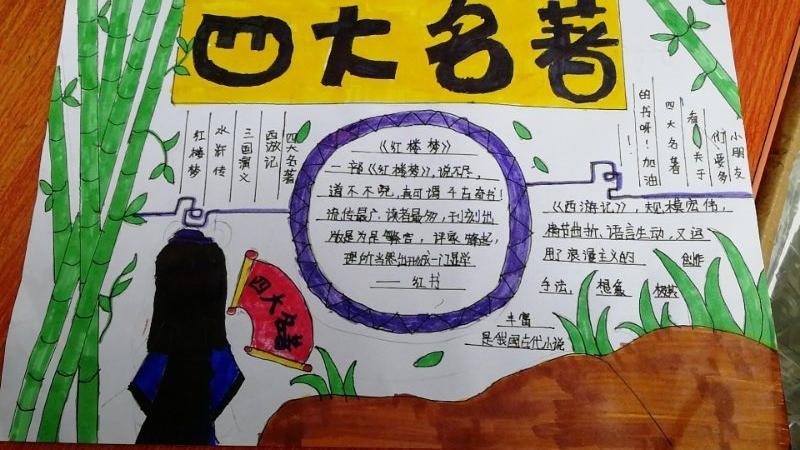 四大名著
小朋友
们要多
看关于
四大名著
的书呀！加油
！
四大名著
西游记
三国演义
水浒传
红楼梦
《红楼梦》
一部《红楼梦》,说不尽,
道不不完,真可谓千古奇书!
流传最广,读者最多,刊刻也
版是为足繁言,评家
理所当然出形成一门显学
——红书
《西游记》,规模宏伟,
情节曲折,语言生动,又运
用了浪漫主义的 创作
手法, 想象
丰富
是我国古代小说
四大名著